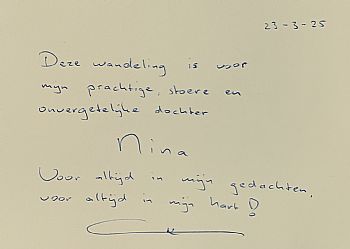 23-3-25
Deze wandeling is voor
mijn prachtige, stoere en
onvergetelijke dochter
Nina
Voor altijd in mijn gedachten,
voor altijd in mijn hart!